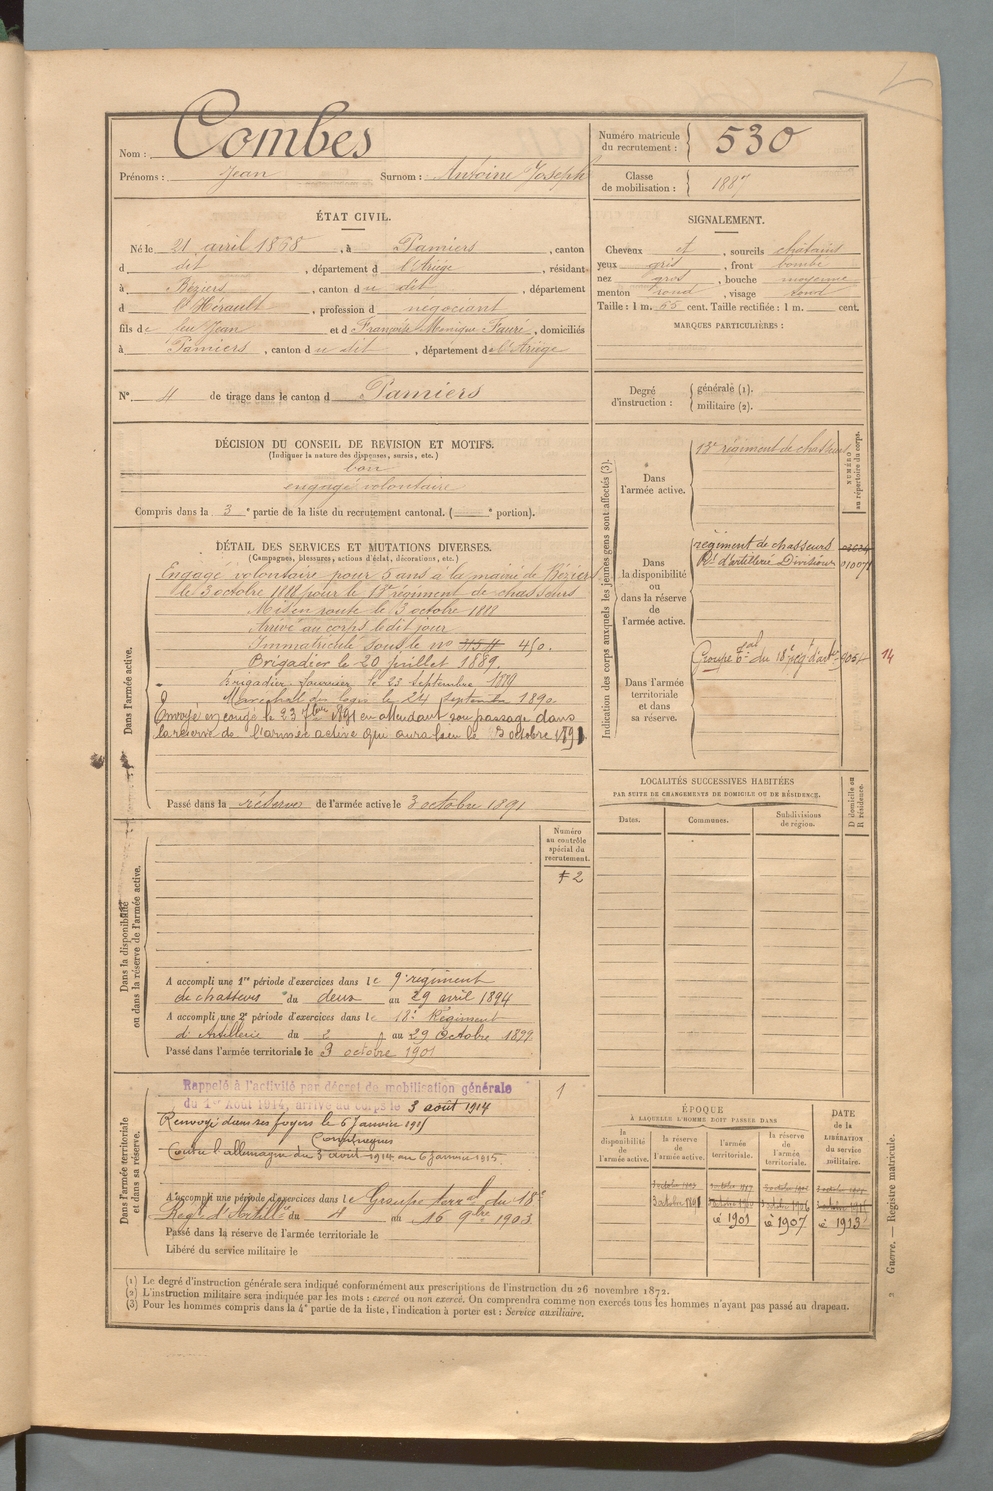 Nom : Combes
Prénoms : Jean Surnom : Antoine Joseph
Numéro matricule du recrutement : 530
Classe de mobilisation : 1887
ÉTAT CIVIL.
Né le 21 avril 1868, à Pamiers, canton
d dit, département d l'Ariège, résidant
à Béziers, canton d u dit, département
d l'Hérault, profession d négociant
fils de feu Jean et d Françoise Monique Fauré, domiciliés
à Pamiers, canton d u dit, département de l'Ariège
N°. 4 de tirage dans le canton d Pamiers
SIGNALEMENT.
Cheveux et, sourcils châtains
yeux gris, front bombé
nez gros, bouche moyenne
menton rond, visage rond
Taille : 1 m. 65 cent. Taille rectifiée : 1 m. cent.
MARQUES PARTICULIÈRES :
Degré d'instruction : générale (1).
militaire (2).
DÉCISION DU CONSEIL DE REVISION ET MOTIFS.
(Indiquer la nature des dispenses, sursis, etc.)
bon
engagé volontaire
Compris dans la 3e partie de la liste du recrutement cantonal. ( e portion).
DÉTAIL DES SERVICES ET MUTATIONS DIVERSES.
(Campagnes, blessures, actions d'éclat, décorations, etc.)
Dans l'armée active.
Engagé volontaire pour 5 ans à la mairie de Béziers
le 3 octobre 1888 pour le 13e régiment de chasseurs
Mis en route le 3 octobre 1888
Arrivé au corps le dit jour
Immatriculé sous le no 450.
Brigadier le 20 juillet 1889.
Brigadier fourrier le 23 septembre 1889
Maréchal des logis le 24 septembre 1890.
Envoyé en congé le 23 7bre 1891 en attendant son passage dans
la réserve de l'armée active qui aura lieu le 3 octobre 1891
Passé dans la réserve de l'armée active le 3 octobre 1891
Dans la disponibilité ou dans la réserve de l'armée active.
Numéro au contrôle spécial du recrutement.
A accompli une 1re période d'exercices dans le 9e régiment
de chasseurs du deux au 29 avril 1894
A accompli une 2e période d'exercices dans le 18e Régiment
d'Artillerie du 2 au 29 Octobre 1899
Passé dans l'armée territoriale le 3 octobre 1901
Dans l'armée territoriale et dans sa réserve.
Rappelé à l'activité par décret de mobilisation générale
du 1er Août 1914, arrivé au corps le 3 août 1914
1
Renvoyé dans ses foyers le 6 Janvier 1915
Campagnes
Contre l'allemagne du 3 août 1914 au 6 Janvier 1915.
A accompli une période d'exercices dans le Groupe terral du 18e
Regt d'Artillie du 4 au 16 9bre 1903.
Passé dans la réserve de l'armée territoriale le
Libéré du service militaire le
Indication des corps auxquels les jeunes gens sont affectés (3).
NUMÉRO au répertoire du corps.
Dans l'armée active.
13e régiment de chasseurs
Dans la disponibilité ou dans la réserve de l'armée active.
régiment de chasseurs
Rt d'artillerie Division
Dans l'armée territoriale et dans sa réserve.
Groupe trial du 18e rég d'arte
14
LOCALITÉS SUCCESSIVES HABITÉES
PAR SUITE DE CHANGEMENTS DE DOMICILE OU DE RÉSIDENCE.
Dates.
Communes.
Subdivisions de région.
D domicile ou R résidence.
ÉPOQUE
À LAQUELLE L'HOMME DOIT PASSER DANS
DATE de la LIBÉRATION du service militaire.
la disponibilité de l'armée active.
la réserve de l'armée active.
l'armée territoriale.
la réserve de l'armée territoriale.
3 octobre 1891
é 1901 é 1907 é 1913
(1) Le degré d'instruction générale sera indiqué conformément aux prescriptions de l'instruction du 26 novembre 1872.
(2) L'instruction militaire sera indiquée par les mots : exercé ou non exercé. On comprendra comme non exercés tous les hommes n'ayant pas passé au drapeau.
(3) Pour les hommes compris dans la 4e partie de la liste, l'indication à porter est : Service auxiliaire.
Guerre. — Registre matricule.
2